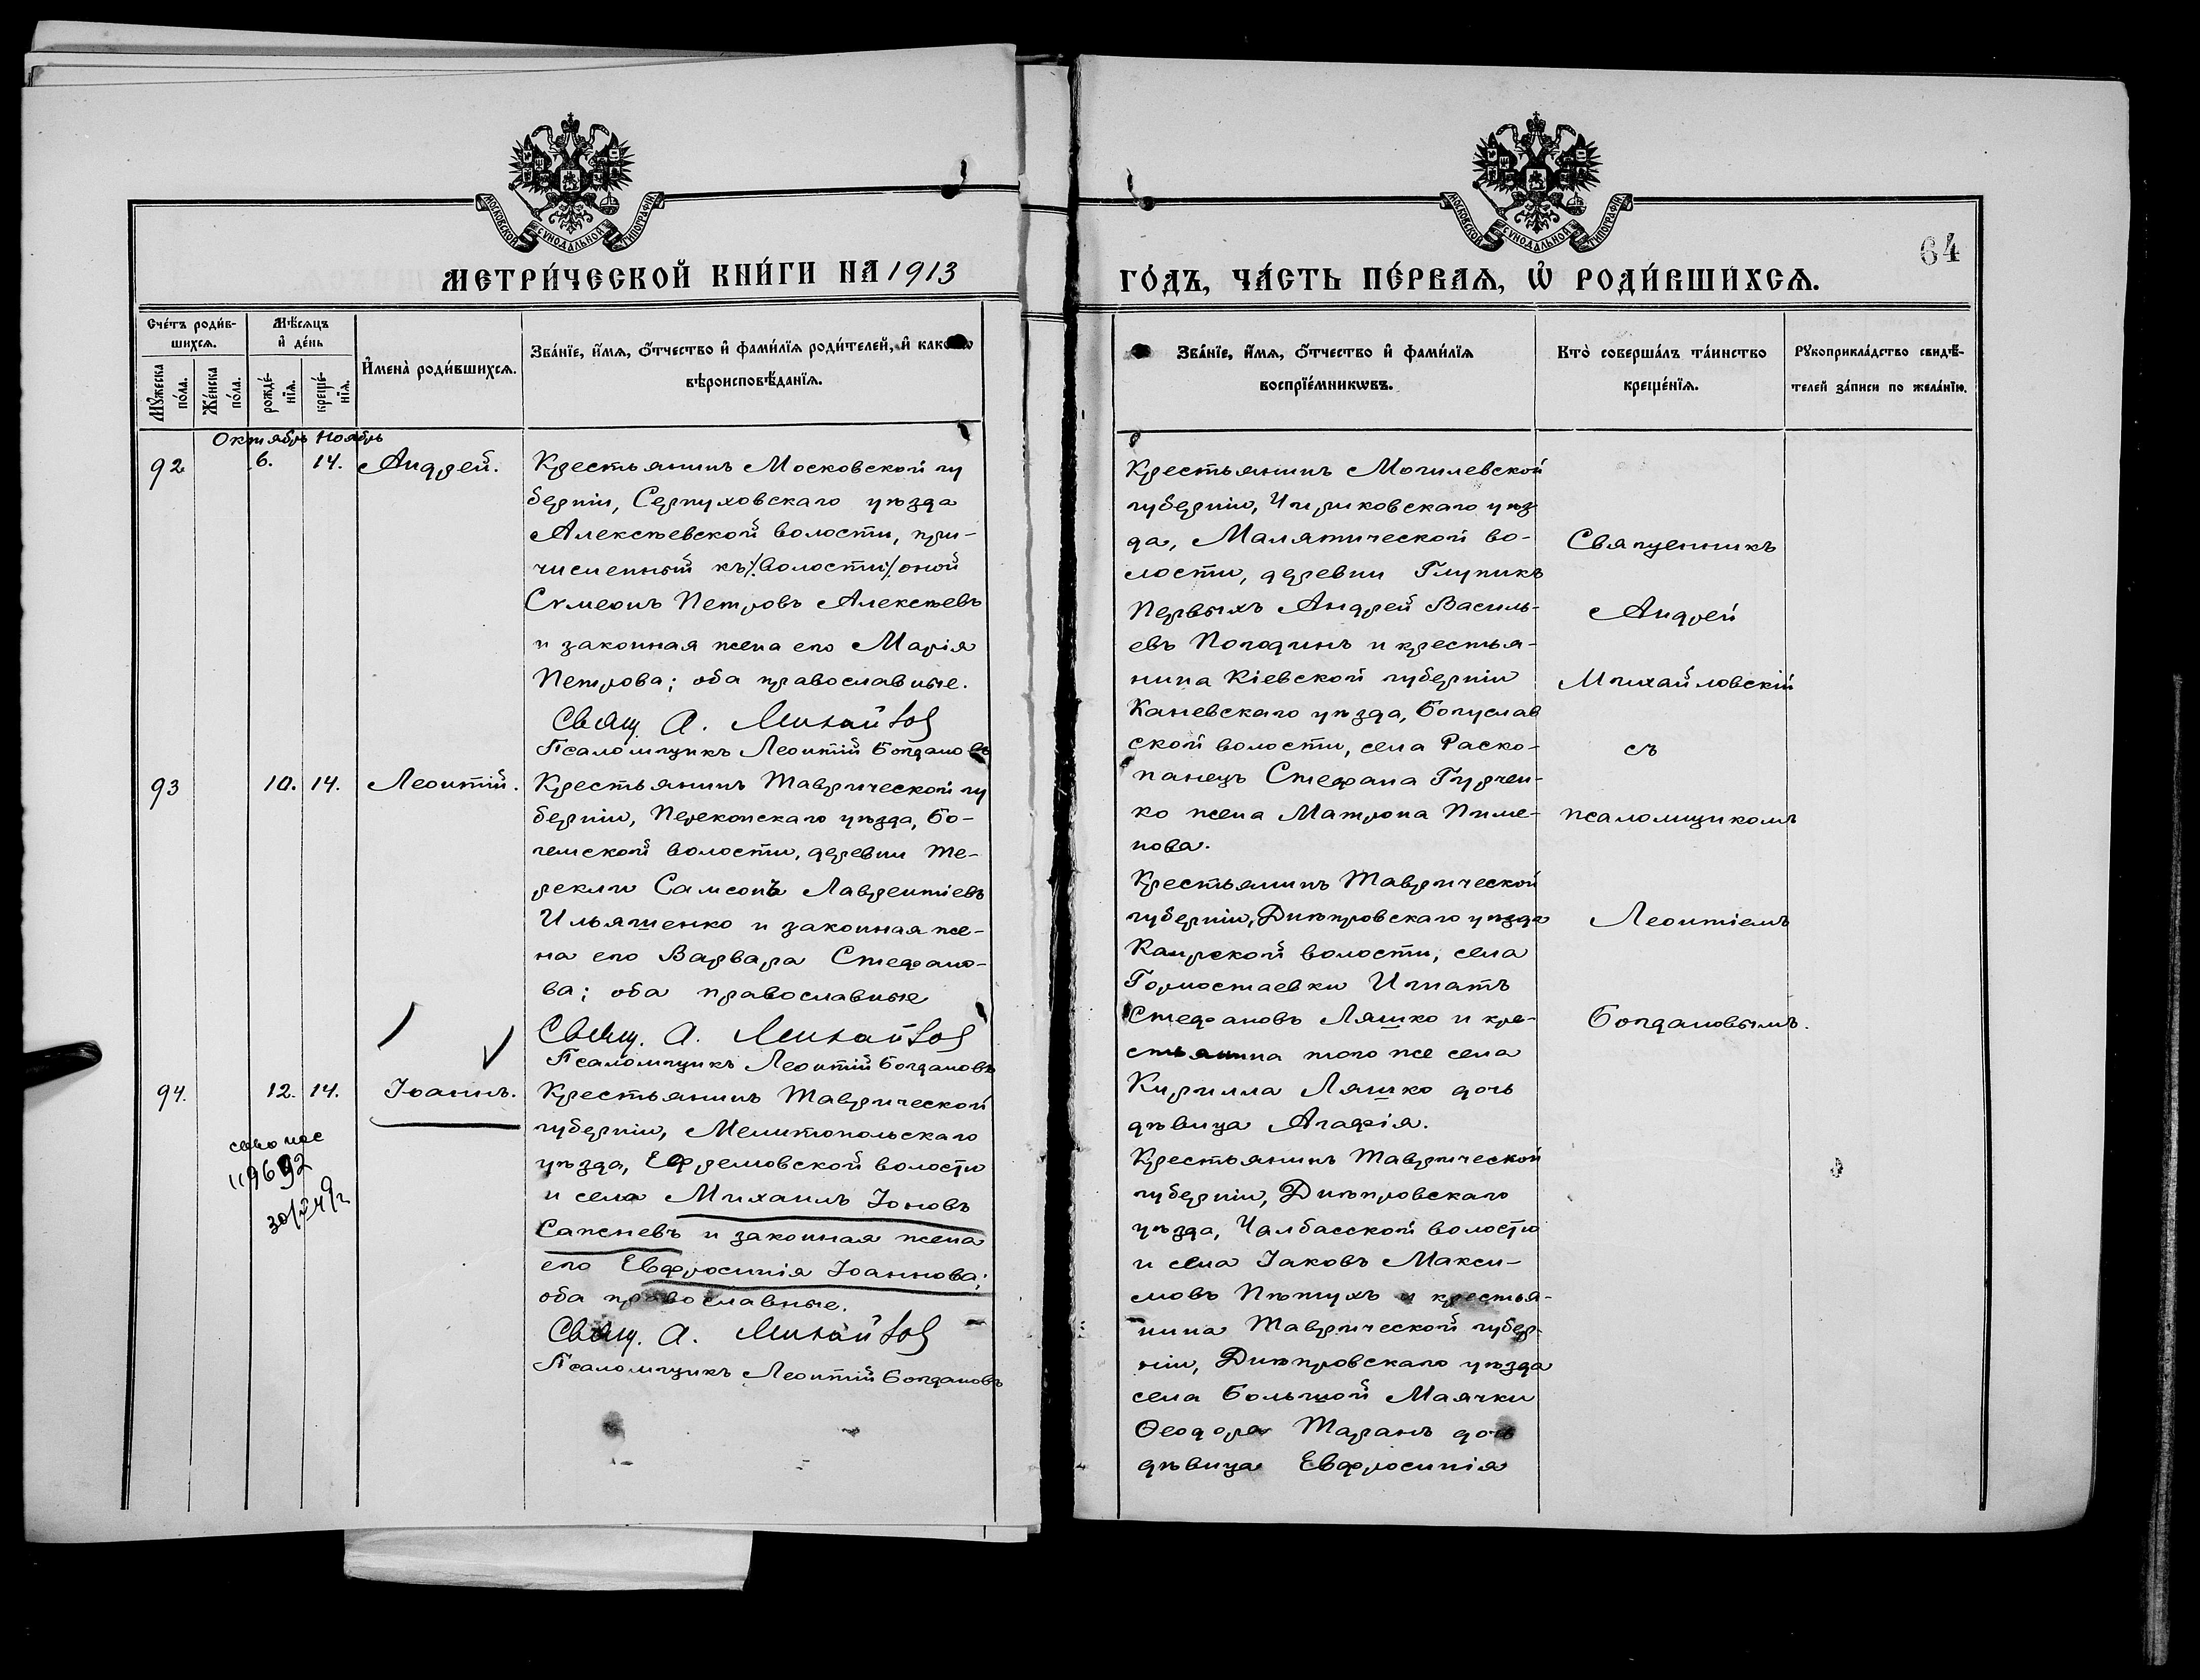 МОСКОВСКОЙ СУНОДАЛЬНОЙ ТИПОГРАФІИ
МЕТРИ́ЧЕСКОЙ КНИ́ГИ НА 1913
Сче́тъ роди́в-
шихсѧ.
Мѣ́сѧцъ
и҆ де́нь
И҆мена̀ роди́вшихсѧ.
Зва́нїе, и҆́мѧ, ѻ҆́тчество и҆ фами́лїѧ роди́телей, и҆ како́гѡ
вѣроисповѣ́данїѧ.
Мꙋ́жеска
по́ла.
Же́нска
по́ла.
рожде́-
нїѧ.
креще́-
нїѧ.
Октябрь Ноябрь
92 6. 14. Андрей.
Крестьянинъ Московской гу
берніи, Серпуховскаго уѣзда
Алексѣевской волости, при-
численный къ ./. волости ./. оной
Сѵмеонъ Петровъ Алексѣевъ
и законная жена его Марія
Петрова; оба православные.
Свящ. А. Михайлов
Псаломщикъ Леонтій Богдановъ
93 10. 14. Леонтій.
Крестьянинъ Таврической гу
берніи, Перекопскаго уѣзда, Бо-
гемской волости, деревни Те-
рекли Самсонъ Лаврентіевъ
Ильяшенко и законная же-
на его Варвара Стефано-
ва; оба православные
Свящ. А. Михайлов
Псаломщикъ Леонтій Богдановъ
94. 12. 14. Іоаннъ.
Крестьянинъ Таврической
губерніи, Мелитопольскаго
уѣзда, Ефремовской волости
и села Михаилъ Іоновъ
Сапсневъ и законная жена
его Евфросинія Іоаннова;
оба православные.
Свящ. А. Михайлов
Псаломщикъ Леонтій Богдановъ
119692
МОСКОВСКОЙ СУНОДАЛЬНОЙ ТИПОГРАФІИ
64
ГО́ДЪ, ЧА́СТЬ ПЕ́РВАѦ, Ѡ҆ РОДИ́ВШИХСѦ.
Зва́нїе, и҆́мѧ, ѻ҆́тчество и҆ фами́лїѧ
воспрїе́мникѡвъ.
Кто̀ соверша́лъ та́инство
креще́нїѧ.
Рꙋкоприкла́дство свидѣ́-
телей за́писи по жела́нїю.
Крестьянинъ Могилевской
губерніи, Чириковскаго уѣз
да, Малятической во-
лости, деревни Глупикъ
Первыхъ Андрей Василь-
евъ Погодинъ и крестья-
нина Кіевской губерніи
Каневскаго уѣзда, Богуслав
ской волости, села Раско-
панецъ Стефана Гурчен-
ко жена Матрона Пиме-
нова.
Крестьянинъ Таврической
губерніи, Днѣпровскаго уѣзда
Каирской волости, села
Горностаевки Игнатъ
Стефановъ Ляшко и кре-
стьянина того же села
Кирилла Ляшко дочь
дѣвица Агафія.
Крестьянинъ Таврической
губерніи, Днѣпровскаго
уѣзда, Чалбасской волости
и села Іаковъ Макси-
мовъ Пѣтухъ и крестья-
нина Таврической губер-
ніи, Днѣпровскаго уѣзда
села Большой Маячки
Ѳеодора Таранъ дочь
дѣвица Евфросинія
Священникъ
Андрей
Михайловскій
съ
псаломщикомъ
Леонтіемъ
Богдановымъ.